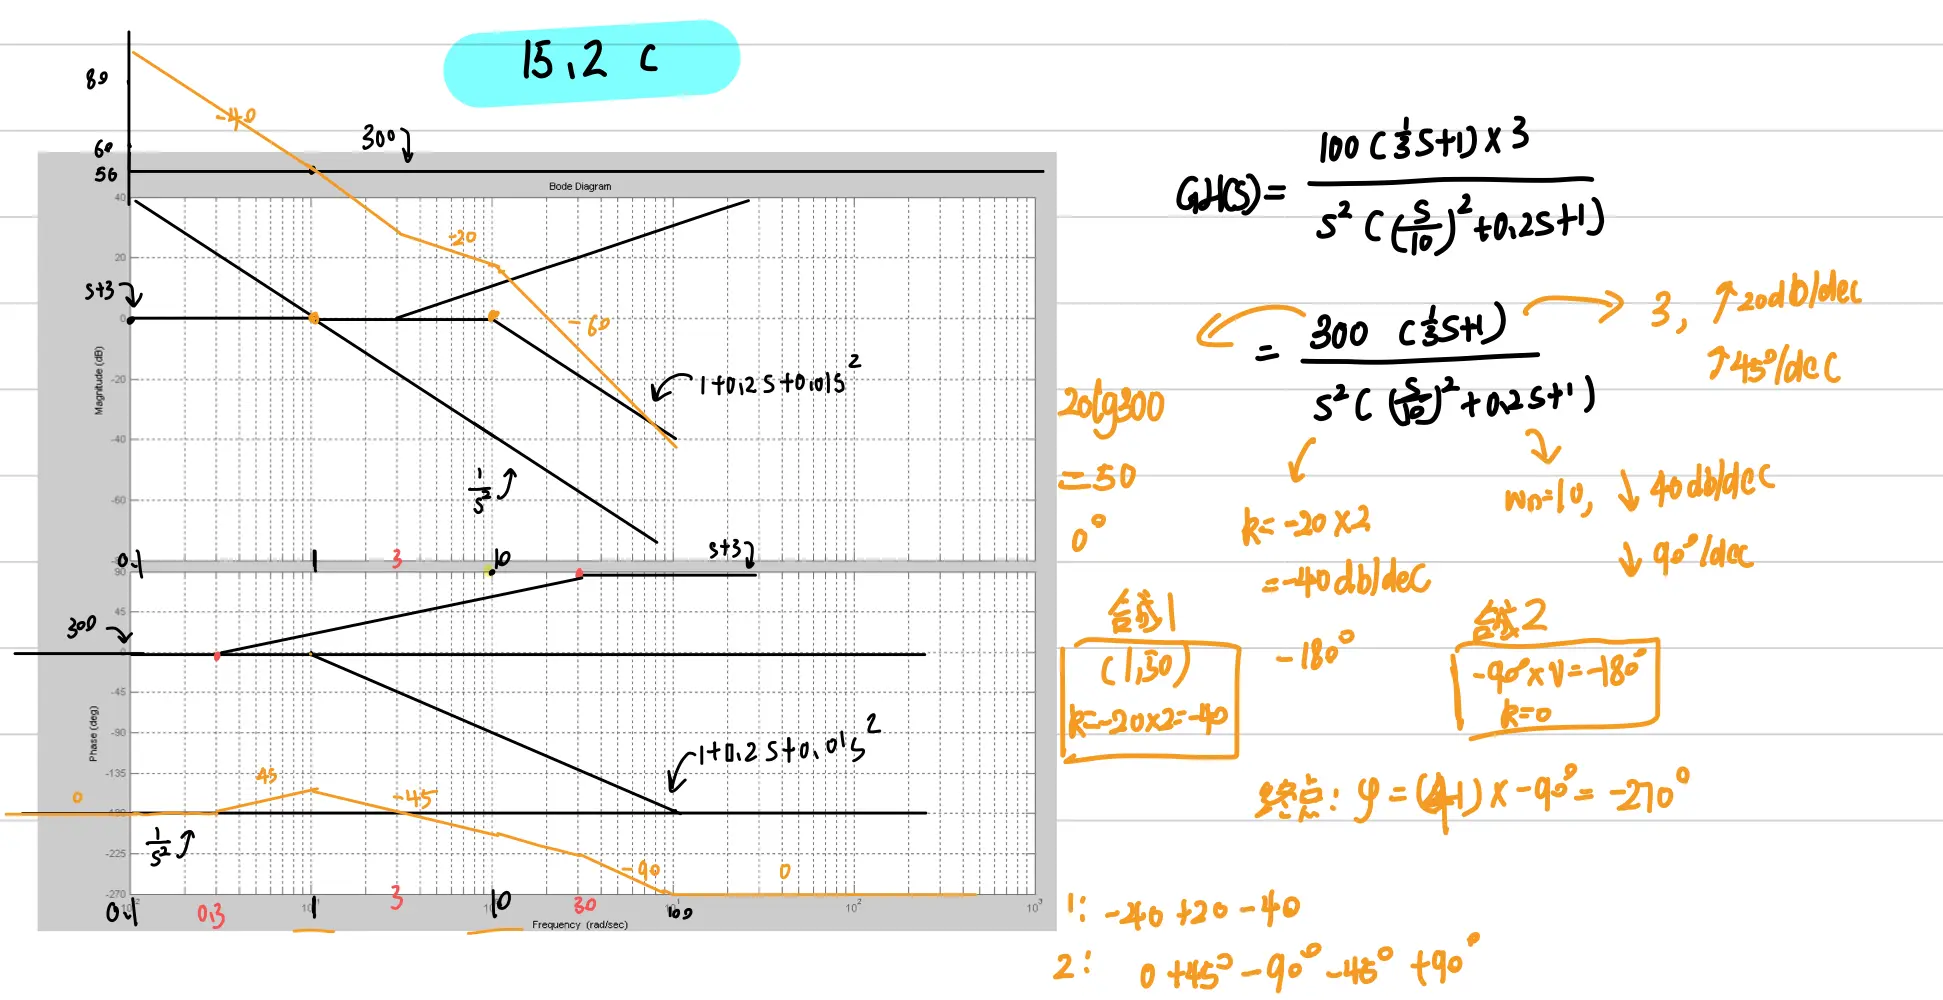 15.2 c
89
60
56
300
-40
Bode Diagram
40
20
0
-20
-40
-60
-80
Magnitude (dB)
s+3
-20
-60
1+0.2s+0.01s²
1/s²
0.1 1 3 10
s+3
90
45
0
-45
-90
-135
-180
-225
-270
Phase (deg)
300
1+0.2s+0.01s²
0 45 -45
1/s²
-90 0
0.1 0.3 1 3 10 30 100 10² 10³
Frequency (rad/sec)
GH(s)= 100(1/3 s+1)×3 / s²((s/10)²+0.2s+1)
= 300 (1/3 s+1) / s²((s/10)²+0.2s+1)
3, ↑20db/dec
↑45°/dec
20lg300
=50
0°
k=-20×2
=-40db/dec
-180°
wn=10, ↓40db/dec
↓90°/dec
合成1
(1,50)
k=-20×2=-40
合成2
-90°×V=-180°
k=0
终点: φ=(4-1)×-90°=-270°
1: -40+20-40
2: 0+45°-90°-45°+90°